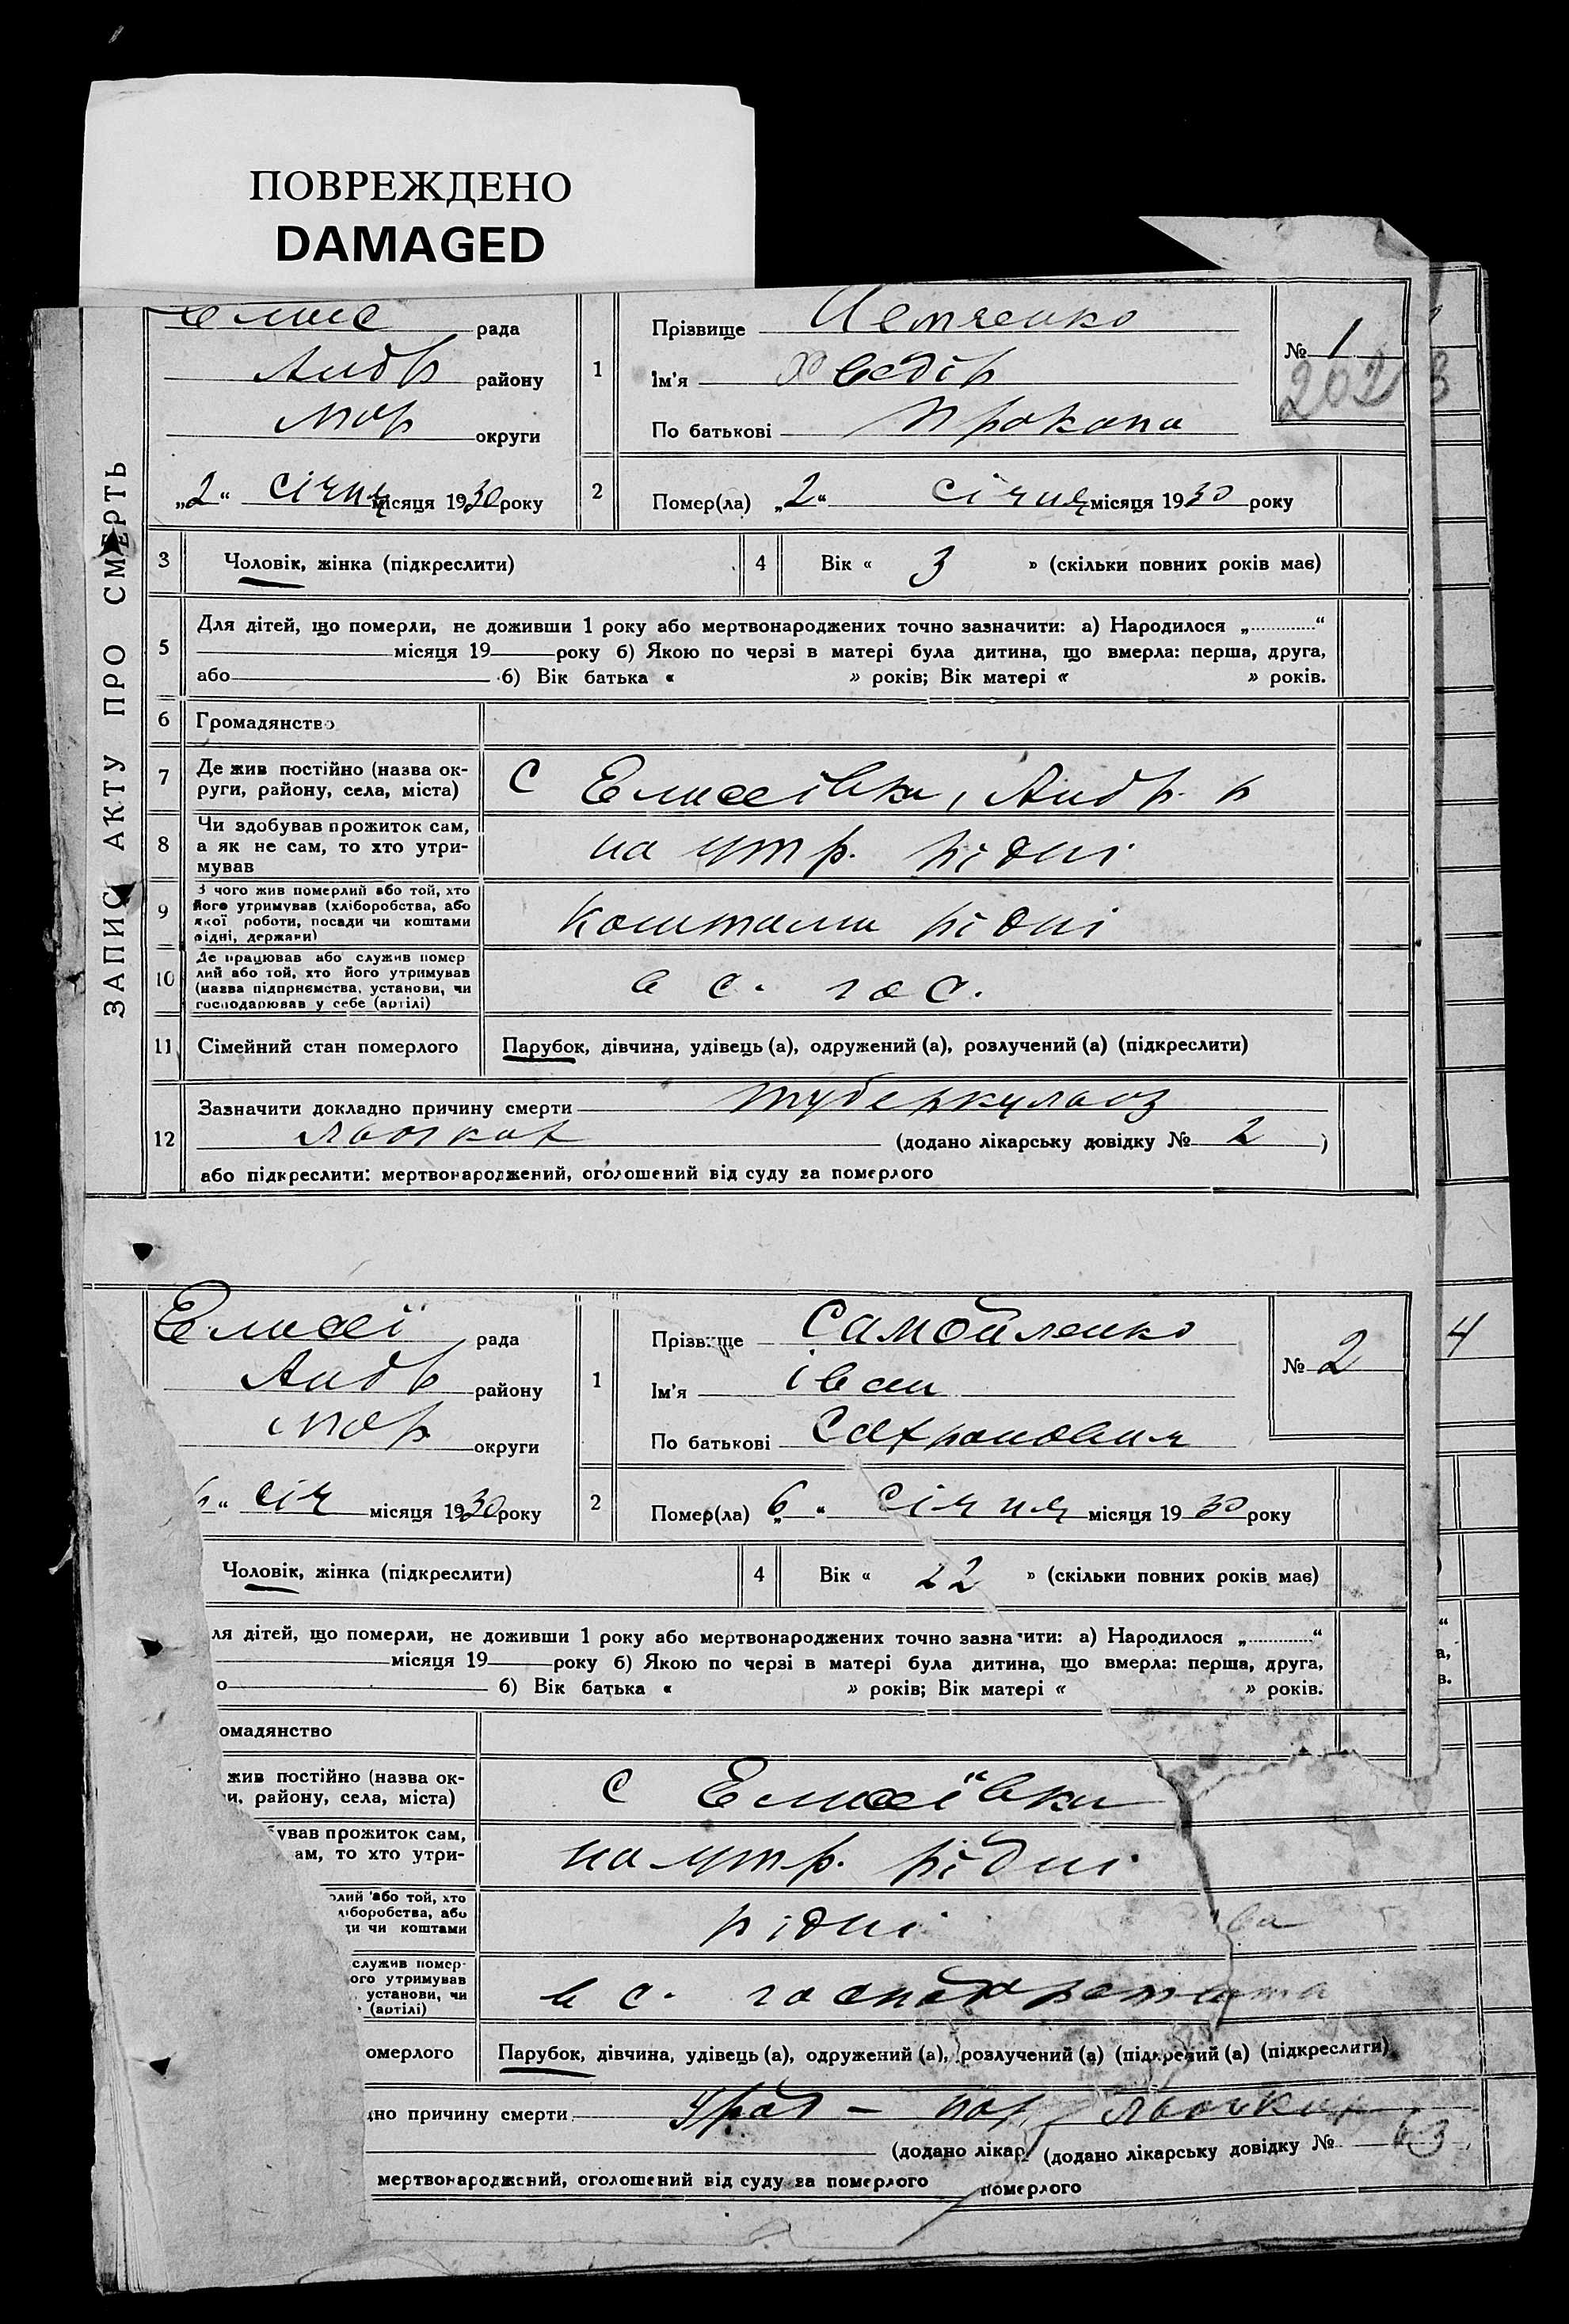 ПОВРЕЖДЕНО
DAMAGED
ЗАПИС АКТУ ПРО СМЕРТЬ
Елис рада
Андр району
Мар округи
„2“ січня місяця 1930 року
1
Прізвище
Ім'я Хведір
По батькові Прокопа
№ 1
202
2
Помер(ла) „2“ січня місяця 1930 року
3 Чоловік, жінка (підкреслити)
4 Вік « 3 » (скільки повних років має)
5
Для дітей, що померли, не доживши 1 року або мертвонароджених точно зазначити: а) Народилося „ “
місяця 19 року б) Якою по черзі в матері була дитина, що вмерла: перша, друга,
або б) Вік батька « » років; Вік матері « » років.
6 Громадянство
7
Де жив постійно (назва ок-
руги, району, села, міста)
С Елисеївки, Андр. р
8
Чи здобував прожиток сам,
а як не сам, то хто утри-
мував
на утр. рідні
9
З чого жив померлий або той, хто
його утримував (хліборобства, або
якої роботи, посади чи коштами
рідні, держави)
Коштами рідні
10
Де працював або служив помер
лий або той, хто його утримував
(назва підприємства, установи, чи
господарював у себе (артілі)
в с. гос.
11 Сімейний стан померлого
Парубок, дівчина, удівець (а), одружений (а), розлучений (а) (підкреслити)
12
Зазначити докладно причину смерти туберкульоз
льогких (додано лікарську довідку № 2 )
або підкреслити: мертвонароджений, оголошений від суду за померлого
Елисеї рада
Андр району
Мар округи
6“ січ місяця 1930 року
1
Прізвище Самойленко
Ім'я Іван
По батькові Сафронович
№ 2
4
2
Помер(ла) „6“ січня місяця 1930 року
Чоловік, жінка (підкреслити)
4 Вік « 22 » (скільки повних років має)
ля дітей, що померли, не доживши 1 року або мертвонароджених точно зазна ити: а) Народилося „ “
місяця 19 року б) Якою по черзі в матері була дитина, що вмерла: перша, друга,
о б) Вік батька « » років; Вік матері « » років.
омадянство
жив постійно (назва ок-
и, району, села, міста)
С Елисеївки
бував прожиток сам,
ам, то хто утри-
на утр. рідні
лий або той, хто
ліборобства, або
ди чи коштами
рідні
служив помер-
ого утримував
установи, чи
(артілі)
в с. господарстві
омерлого
Парубок, дівчина, удівець (а), одружений (а), розлучений (а) (підкрений (а) (підкреслити)
дно причину смерти льогких
(додано лікар (додано лікарську довідку № 63
мертвонароджений, оголошений від суду за померлого
померлого